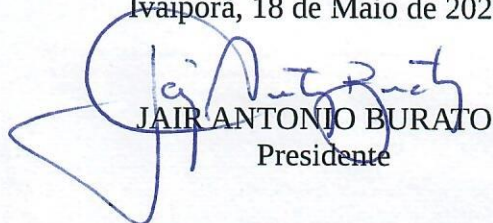 Ivaiporã, 18 de Maio de 202
JAIR ANTONIO BURATO
Presidente